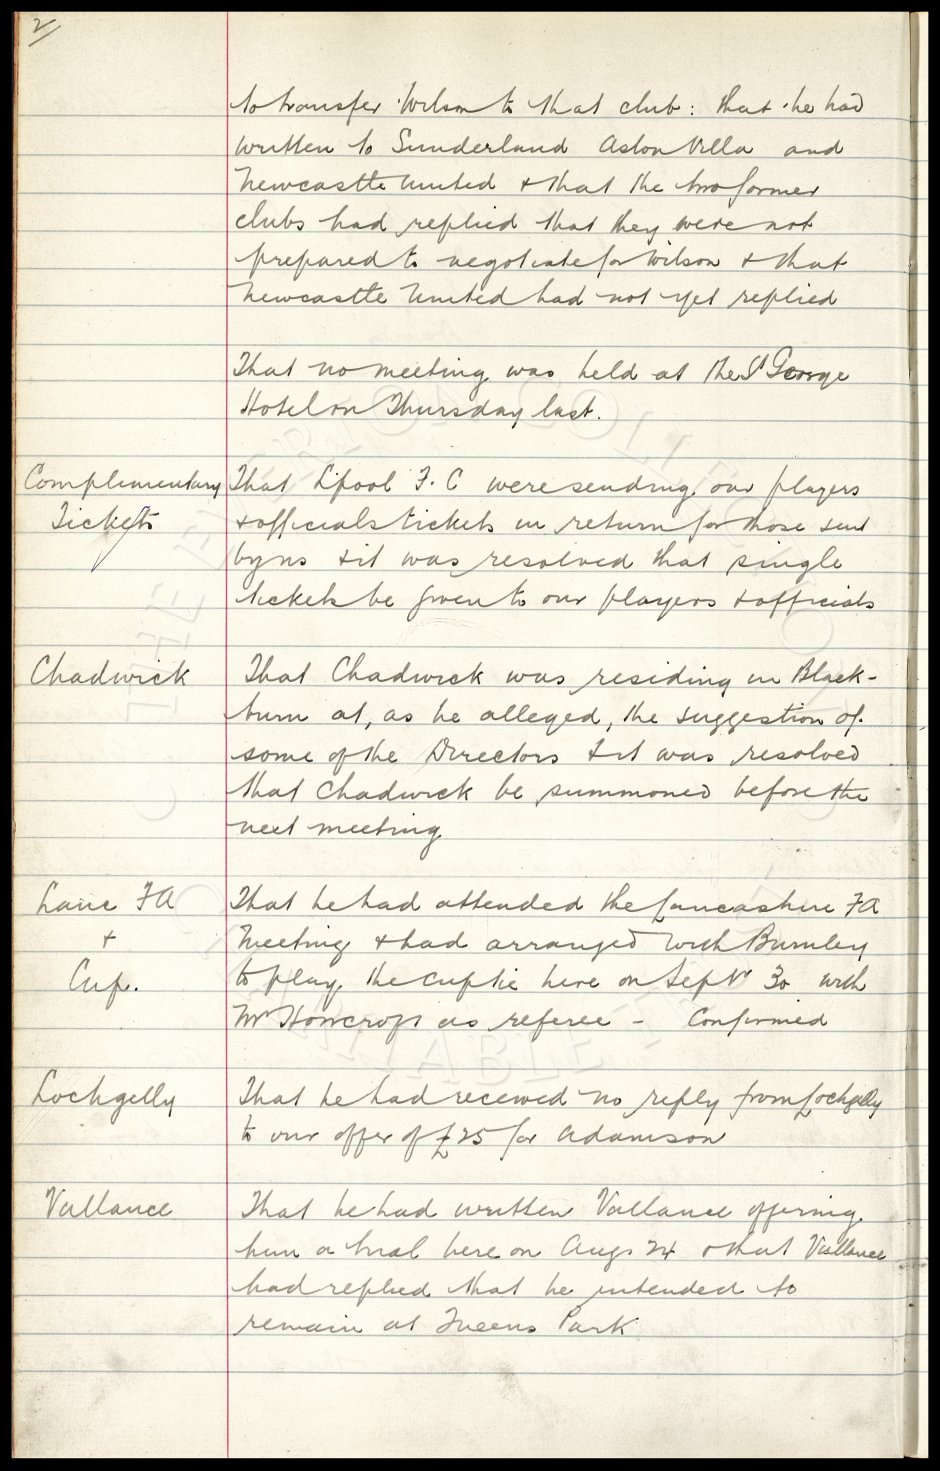 2
to transfer Wilson to that club: that he had
written to Sunderland Aston Villa and
Newcastle United & that the two former
clubs had replied that they were not
prepared to negotiate for Wilson & that
Newcastle United had not yet replied
That no meeting was held at the St George
Hotel on Thursday last.
Complimentary
Tickets
That Lpool F.C were sending our players
& officials tickets in return for those sent
by us & it was resolved that single
tickets be given to our players & officials
Chadwick
That Chadwick was residing in Black-
burn at, as he alleged, the suggestion of
some of the Directors & it was resolved
that Chadwick be summoned before the
next meeting
Lanc FA
+
Cup.
That he had attended the Lancashire FA
Meeting & had arranged with Burnley
to play the cup tie here on Septr 30 with
Mr Howcroft as referee - Confirmed
Lochgelly
That he had received no reply from Lochgelly
to our offer of £25 for Adamson
Vallance
That he had written Vallance offering
him a trial here on Aug 24 & that Vallance
had replied that he intended to
remain at Queens Park
THE EVERTON COLLECTION
CHARITABLE TRUST